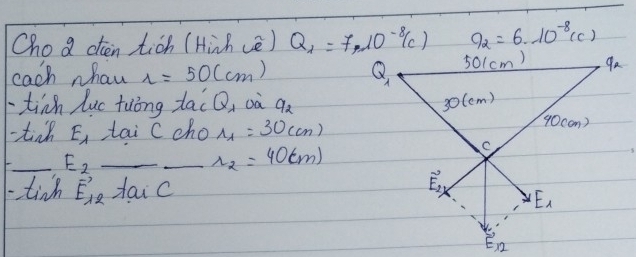 Cho 2 điện tích (Hình vẽ) Q₁ = 7,10⁻⁸(c) q₂ = 6.10⁻⁸(c)
cách nhau r = 50(cm)
- tính lực tương tác Q₁ và q₂
- tính E₁ tại C cho r₁ = 30(cm)
- ___ E₂ ___ ___ r₂ = 40(cm)
- tính E⃗₁₂ tại C
Q₁ 50(cm) q₂
30(cm)
40(cm)
C
E⃗₂ E₁
E⃗₁₂